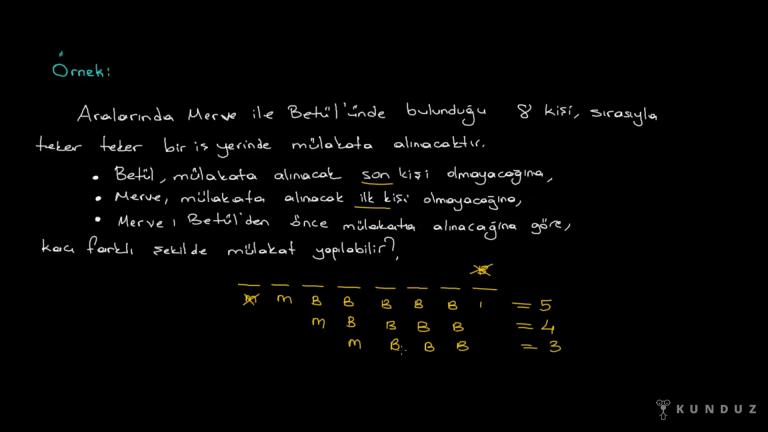 Örnek:
Aralarında Merve ile Betül'ünde bulunduğu 8 kişi, sırasıyla
teker teker bir iş yerinde mülakata alınacaktır.
• Betül, mülakata alınacak son kişi olmayacağına,
• Merve, mülakata alınacak ilk kişi olmayacağına,
• Merve, Betül'den önce mülakata alınacağına göre,
kaç farklı şekilde mülakat yapılabilir?
B
M M B B B B B = 5
M B B B B = 4
M B B B = 3
KUNDUZ